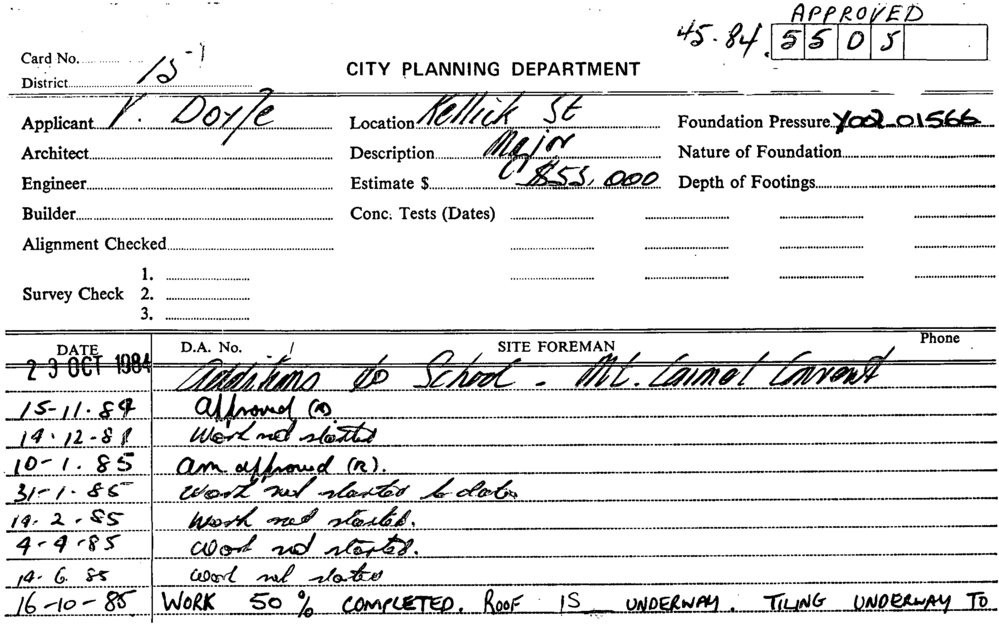 APPROVED
45-84. 5505
Card No.
District 15-1
CITY PLANNING DEPARTMENT
Applicant V. Doyle Location Kellick St Foundation Pressure Y002-01566
Architect Description Major Nature of Foundation
Engineer Estimate $ $55,000 Depth of Footings
Builder Conc. Tests (Dates)
Alignment Checked
1.
Survey Check 2.
3.
DATE D.A. No. SITE FOREMAN Phone
23 OCT 1984 Additions to School - Mt. Carmel Convent
15-11-84 Approved (R)
14-12-84 Work not started
10-1-85 Am approved (R).
31-1-85 Work not started to date
14-2-85 Work not started.
4-4-85 Work not started.
14-6-85 Work not started
16-10-85 WORK 50% COMPLETED. ROOF IS UNDERWAY. TILING UNDERWAY TO